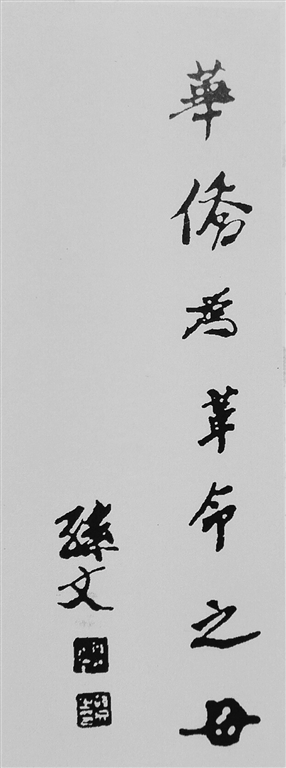 華僑為革命之母
孫文